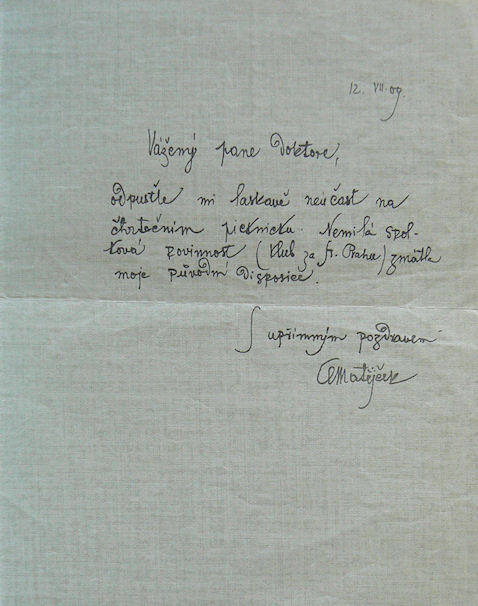 12. VII. 09.
Vážený pane Doktore,
odpusťte mi laskavě neúčast na
čtvrtečním picknicku. Nemilá spol-
ková povinnost (Klub za st. Prahu) zmátla
moje původní disposice.
S upřímným pozdravem
AMatějček